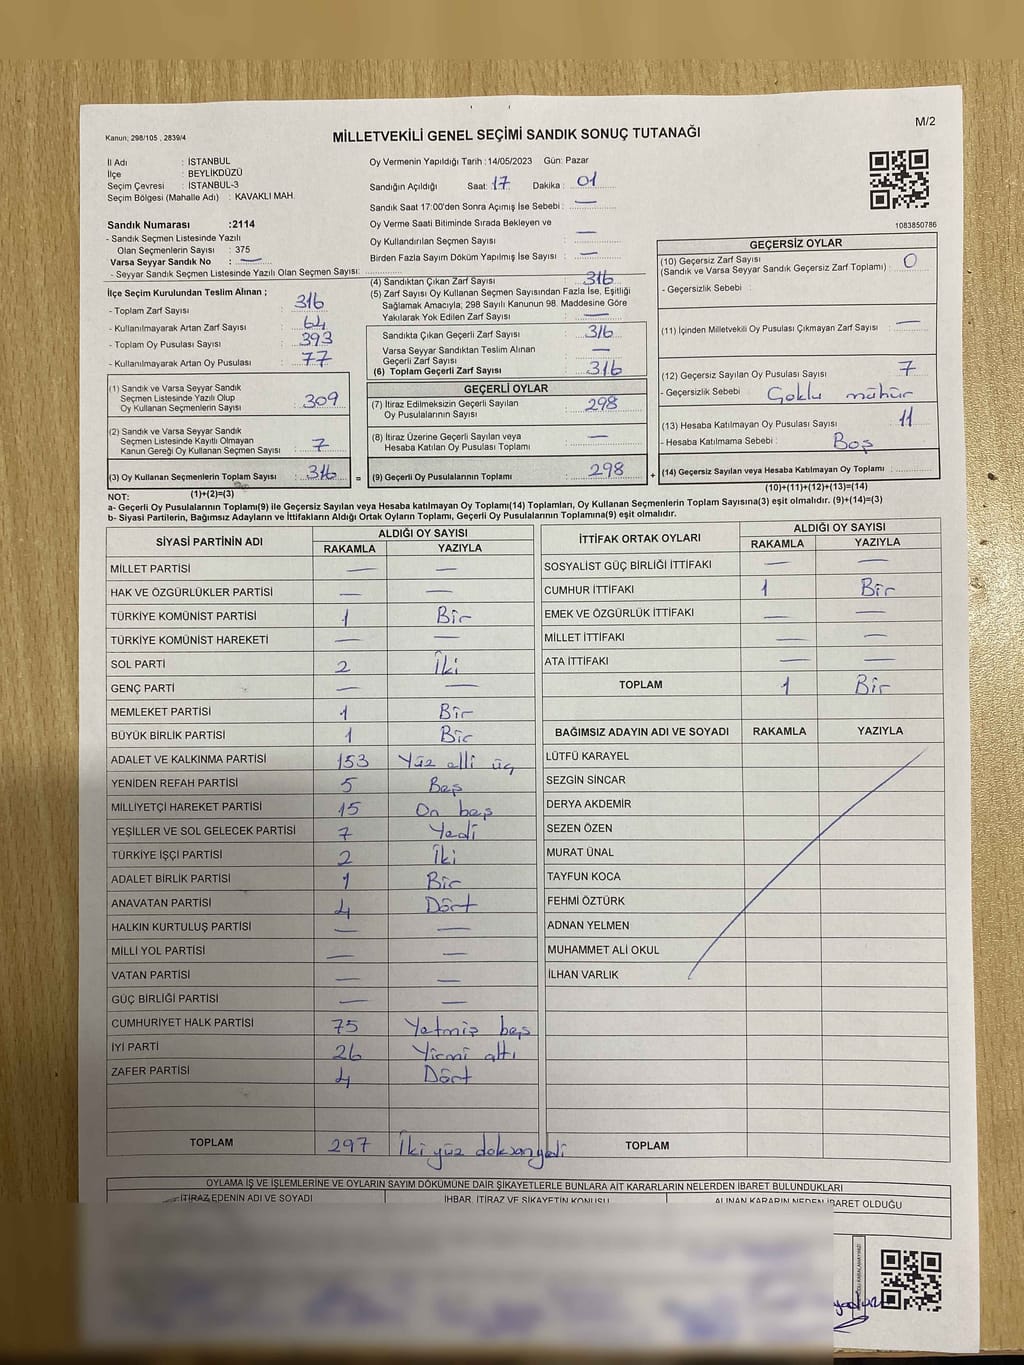 Kanun; 298/105 , 2839/4
M/2
MİLLETVEKİLİ GENEL SEÇİMİ SANDIK SONUÇ TUTANAĞI
İl Adı : İSTANBUL
İlçe : BEYLİKDÜZÜ
Seçim Çevresi : İSTANBUL-3
Seçim Bölgesi (Mahalle Adı) : KAVAKLI MAH.
Sandık Numarası :2114
- Sandık Seçmen Listesinde Yazılı
Olan Seçmenlerin Sayısı : 375
Varsa Seyyar Sandık No : —
- Seyyar Sandık Seçmen Listesinde Yazılı Olan Seçmen Sayısı:
Oy Vermenin Yapıldığı Tarih :14/05/2023 Gün: Pazar
Sandığın Açıldığı Saat: 17 Dakika : 01
Sandık Saat 17:00'den Sonra Açımış İse Sebebi : —
Oy Verme Saati Bitiminde Sırada Bekleyen ve
Oy Kullandırılan Seçmen Sayısı : —
Birden Fazla Sayım Döküm Yapılmış İse Sayısı : —
1083850786
İlçe Seçim Kurulundan Teslim Alınan ;
- Toplam Zarf Sayısı : 316
- Kullanılmayarak Artan Zarf Sayısı : 64
- Toplam Oy Pusulası Sayısı : 393
- Kullanılmayarak Artan Oy Pusulası : 77
(1) Sandık ve Varsa Seyyar Sandık
Seçmen Listesinde Yazılı Olup
Oy Kullanan Seçmenlerin Sayısı : 309
(2) Sandık ve Varsa Seyyar Sandık
Seçmen Listesinde Kayıtlı Olmayan
Kanun Gereği Oy Kullanan Seçmen Sayısı : 7
(3) Oy Kullanan Seçmenlerin Toplam Sayısı : 316
(1)+(2)=(3)
(4) Sandıktan Çıkan Zarf Sayısı : 316
(5) Zarf Sayısı Oy Kullanan Seçmen Sayısından Fazla İse, Eşitliği
Sağlamak Amacıyla; 298 Sayılı Kanunun 98. Maddesine Göre
Yakılarak Yok Edilen Zarf Sayısı : —
Sandıkta Çıkan Geçerli Zarf Sayısı : 316
Varsa Seyyar Sandıktan Teslim Alınan
Geçerli Zarf Sayısı : —
(6) Toplam Geçerli Zarf Sayısı : 316
GEÇERLİ OYLAR
(7) İtiraz Edilmeksizin Geçerli Sayılan
Oy Pusulalarının Sayısı : 298
(8) İtiraz Üzerine Geçerli Sayılan veya
Hesaba Katılan Oy Pusulası Toplamı : —
= (9) Geçerli Oy Pusulalarının Toplamı : 298 +
GEÇERSİZ OYLAR
(10) Geçersiz Zarf Sayısı
(Sandık ve Varsa Seyyar Sandık Geçersiz Zarf Toplamı) : 0
- Geçersizlik Sebebi :
(11) İçinden Milletvekili Oy Pusulası Çıkmayan Zarf Sayısı : —
(12) Geçersiz Sayılan Oy Pusulası Sayısı : 7
- Geçersizlik Sebebi : Çoklu mühür
(13) Hesaba Katılmayan Oy Pusulası Sayısı : 11
- Hesaba Katılmama Sebebi : Boş
(14) Geçersiz Sayılan veya Hesaba Katılmayan Oy Toplamı :
(10)+(11)+(12)+(13)=(14)
NOT:
a- Geçerli Oy Pusulalarının Toplamı(9) ile Geçersiz Sayılan veya Hesaba katılmayan Oy Toplamı(14) Toplamları, Oy Kullanan Seçmenlerin Toplam Sayısına(3) eşit olmalıdır. (9)+(14)=(3)
b- Siyasi Partilerin, Bağımsız Adayların ve İttifakların Aldığı Ortak Oyların Toplamı, Geçerli Oy Pusulalarının Toplamına(9) eşit olmalıdır.
SİYASİ PARTİNİN ADI ALDIĞI OY SAYISI
RAKAMLA YAZIYLA
MİLLET PARTİSİ — —
HAK VE ÖZGÜRLÜKLER PARTİSİ — —
TÜRKİYE KOMÜNİST PARTİSİ 1 Bir
TÜRKİYE KOMÜNİST HAREKETİ — —
SOL PARTİ 2 İki
GENÇ PARTİ — —
MEMLEKET PARTİSİ 1 Bir
BÜYÜK BİRLİK PARTİSİ 1 Bir
ADALET VE KALKINMA PARTİSİ 153 Yüz elli üç
YENİDEN REFAH PARTİSİ 5 Beş
MİLLİYETÇİ HAREKET PARTİSİ 15 On beş
YEŞİLLER VE SOL GELECEK PARTİSİ 7 Yedi
TÜRKİYE İŞÇİ PARTİSİ 2 İki
ADALET BİRLİK PARTİSİ 1 Bir
ANAVATAN PARTİSİ 4 Dört
HALKIN KURTULUŞ PARTİSİ — —
MİLLİ YOL PARTİSİ — —
VATAN PARTİSİ — —
GÜÇ BİRLİĞİ PARTİSİ — —
CUMHURİYET HALK PARTİSİ 75 Yetmiş beş
İYİ PARTİ 26 Yirmi altı
ZAFER PARTİSİ 4 Dört
TOPLAM 297 İki yüz doksanyedi
İTTİFAK ORTAK OYLARI ALDIĞI OY SAYISI
RAKAMLA YAZIYLA
SOSYALİST GÜÇ BİRLİĞİ İTTİFAKI — —
CUMHUR İTTİFAKI 1 Bir
EMEK VE ÖZGÜRLÜK İTTİFAKI — —
MİLLET İTTİFAKI — —
ATA İTTİFAKI — —
TOPLAM 1 Bir
BAĞIMSIZ ADAYIN ADI VE SOYADI RAKAMLA YAZIYLA
LÜTFÜ KARAYEL
SEZGİN SİNCAR
DERYA AKDEMİR
SEZEN ÖZEN
MURAT ÜNAL
TAYFUN KOCA
FEHMİ ÖZTÜRK
ADNAN YELMEN
MUHAMMET ALİ OKUL
İLHAN VARLIK
TOPLAM
OYLAMA İŞ VE İŞLEMLERİNE VE OYLARIN SAYIM DÖKÜMÜNE DAİR ŞİKAYETLERLE BUNLARA AİT KARARLARIN NELERDEN İBARET BULUNDUKLARI
İTİRAZ EDENİN ADI VE SOYADI İHBAR, İTİRAZ VE ŞİKAYETİN KONUSU ALINAN KARARIN NEDEN İBARET OLDUĞU